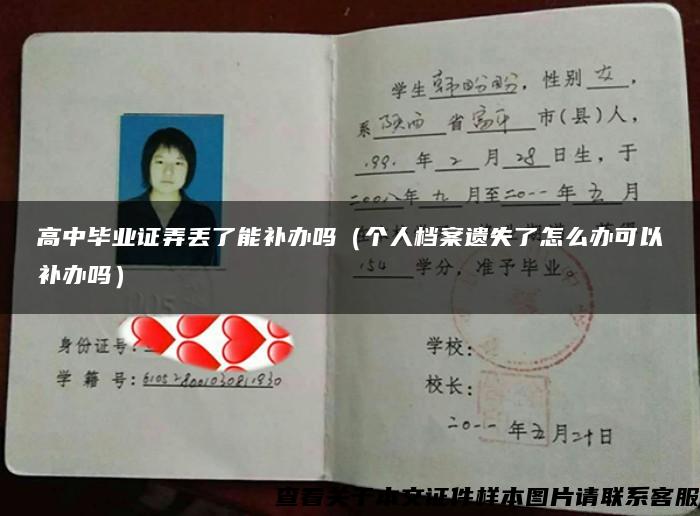 学生韩盼盼，性别女，
系陕西省富平市(县)人，
1991年2月28日生，于
二00八年九月至二0一一年五月
高中毕业证弄丢了能补办吗（个人档案遗失了怎么办可以
补办吗）
154学分，准予毕业。
身份证号：
学籍号：
学校：
校长：
二0一一年五月二十日
查看关于本文证件样本图片请联系客服